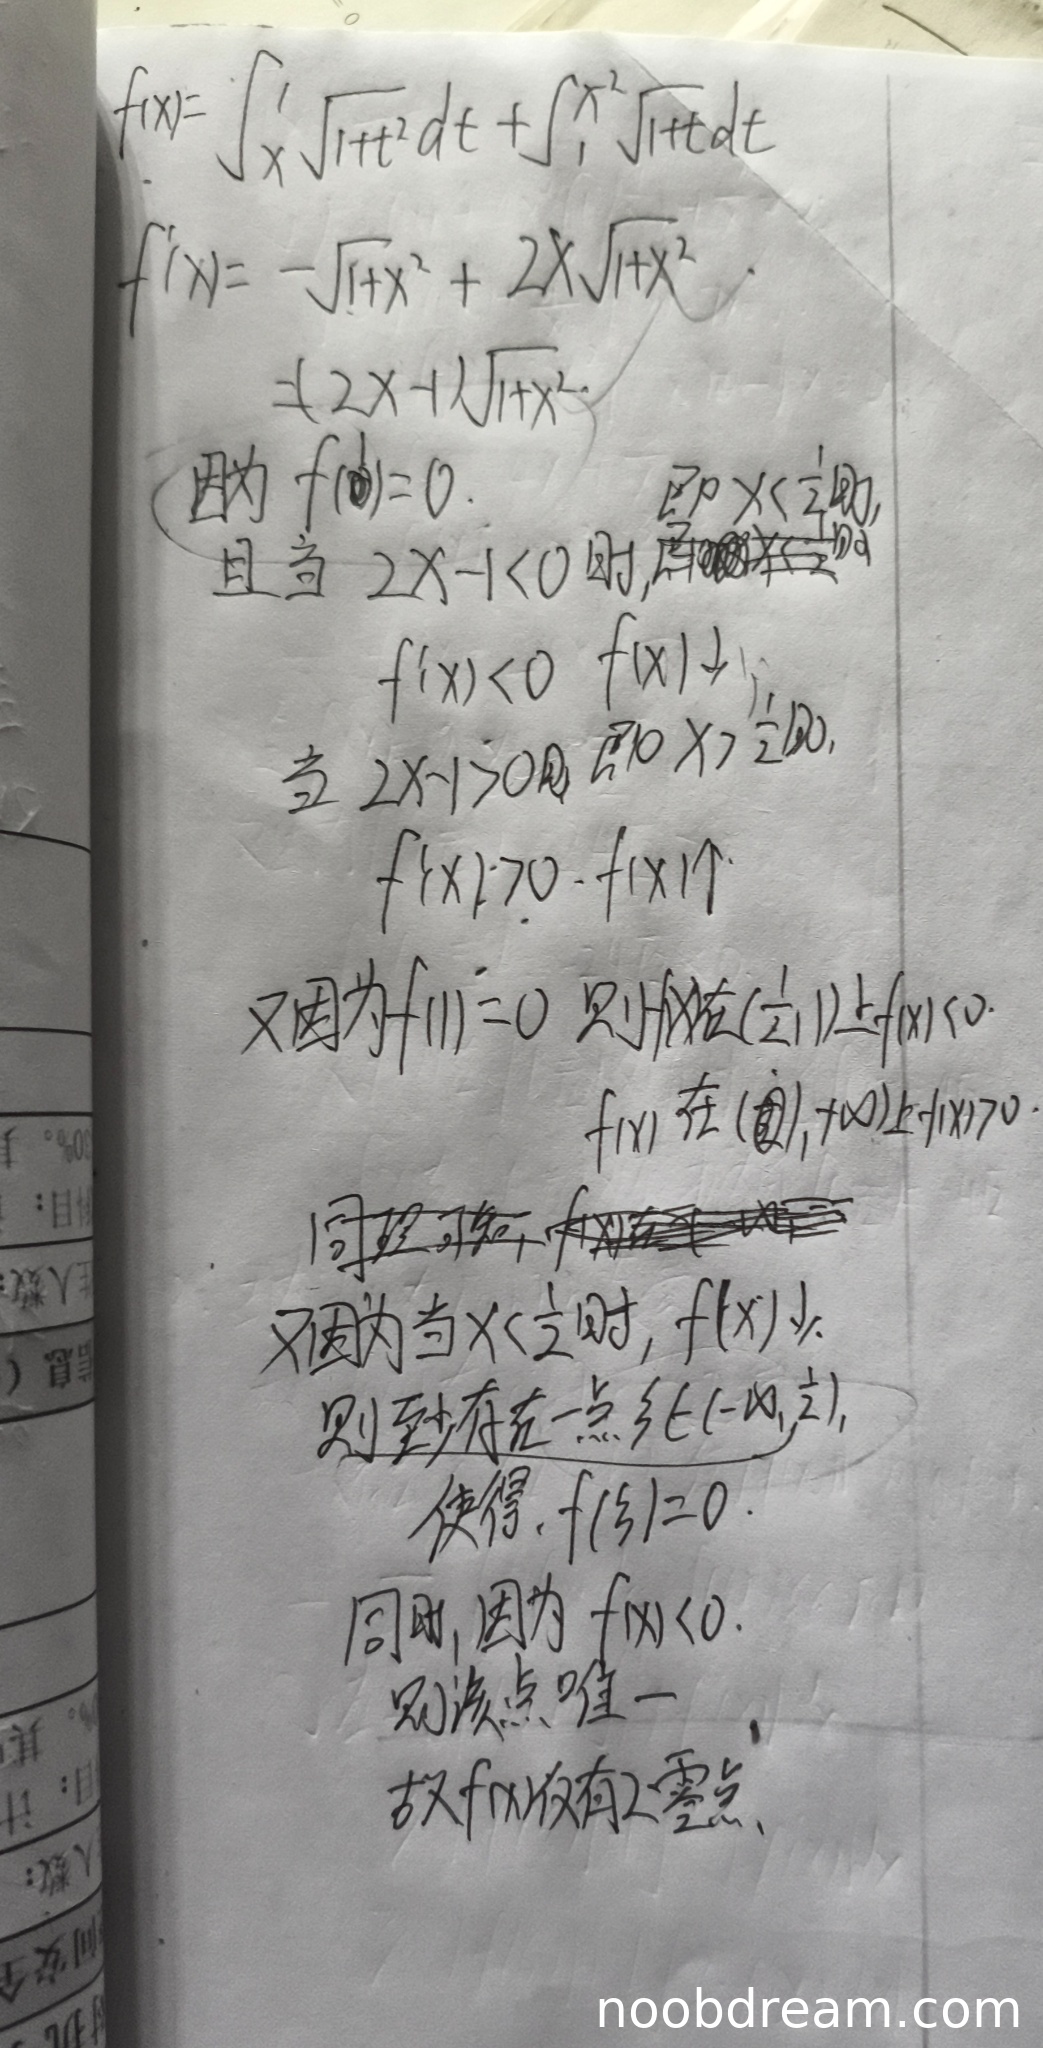 f(x)= ∫_x^1 √(1+t²) dt + ∫_1^{x²} √(1+t) dt
f'(x)= -√(1+x²) + 2x√(1+x²).
=(2x-1)√(1+x²).
因为 f(1)=0.
即 x<1/2时,
且当 2x-1<0时,
f'(x)<0 f(x)↓
当 2x-1>0时 即 x>1/2时,
f'(x)>0. f(x)↑.
又因为f(1)=0 则f(x)在(1/2,1)上f(x)<0.
f(x) 在(1,+∞)上f(x)>0.
同理可知,
又因为当x<1/2时, f(x)↓.
则至少存在一点ξ∈(-∞,1/2),
使得. f(ξ)=0.
同时,因为 f'(x)<0.
则该点唯一
故f(x)仅有2零点.
30%。
科目:
人数:
信息(
目: 计
人数:
间安全
noobdream.com